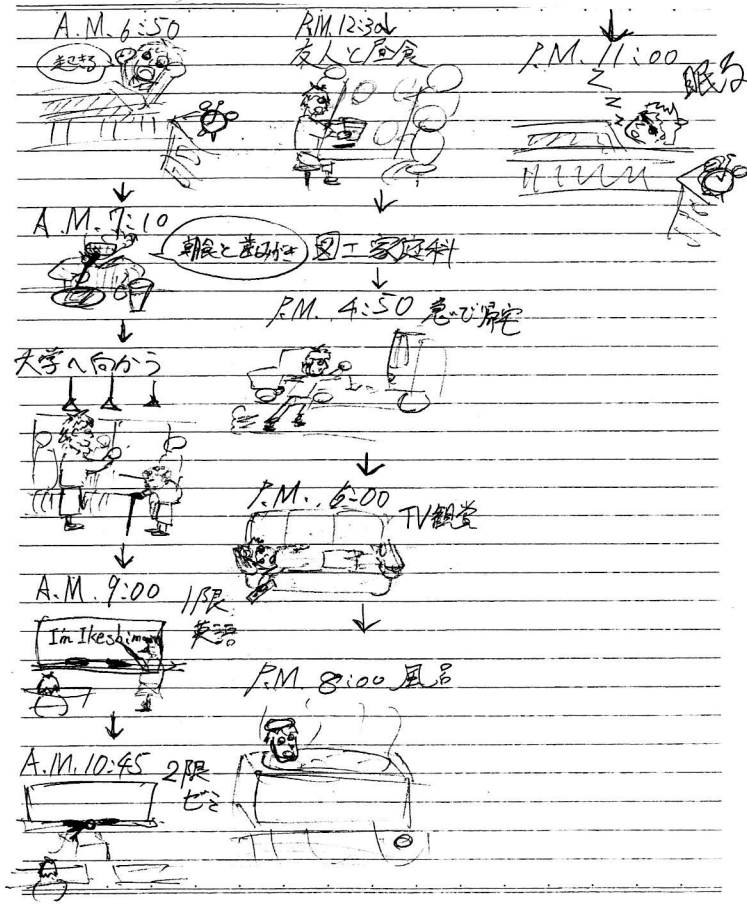 A.M. 6:50
起きる
A.M. 7:10
朝食と歯みがき
大学へ向かう
A.M. 9:00 1限
英語
I'm Ikeshima
A.M. 10:45 2限
ゼミ
P.M. 12:30
友人と昼食
図工家庭科
P.M. 4:50 急いで帰宅
P.M. 6:00
TV観賞
P.M. 8:00 風呂
P.M. 11:00
眠る
Z
Z
Z